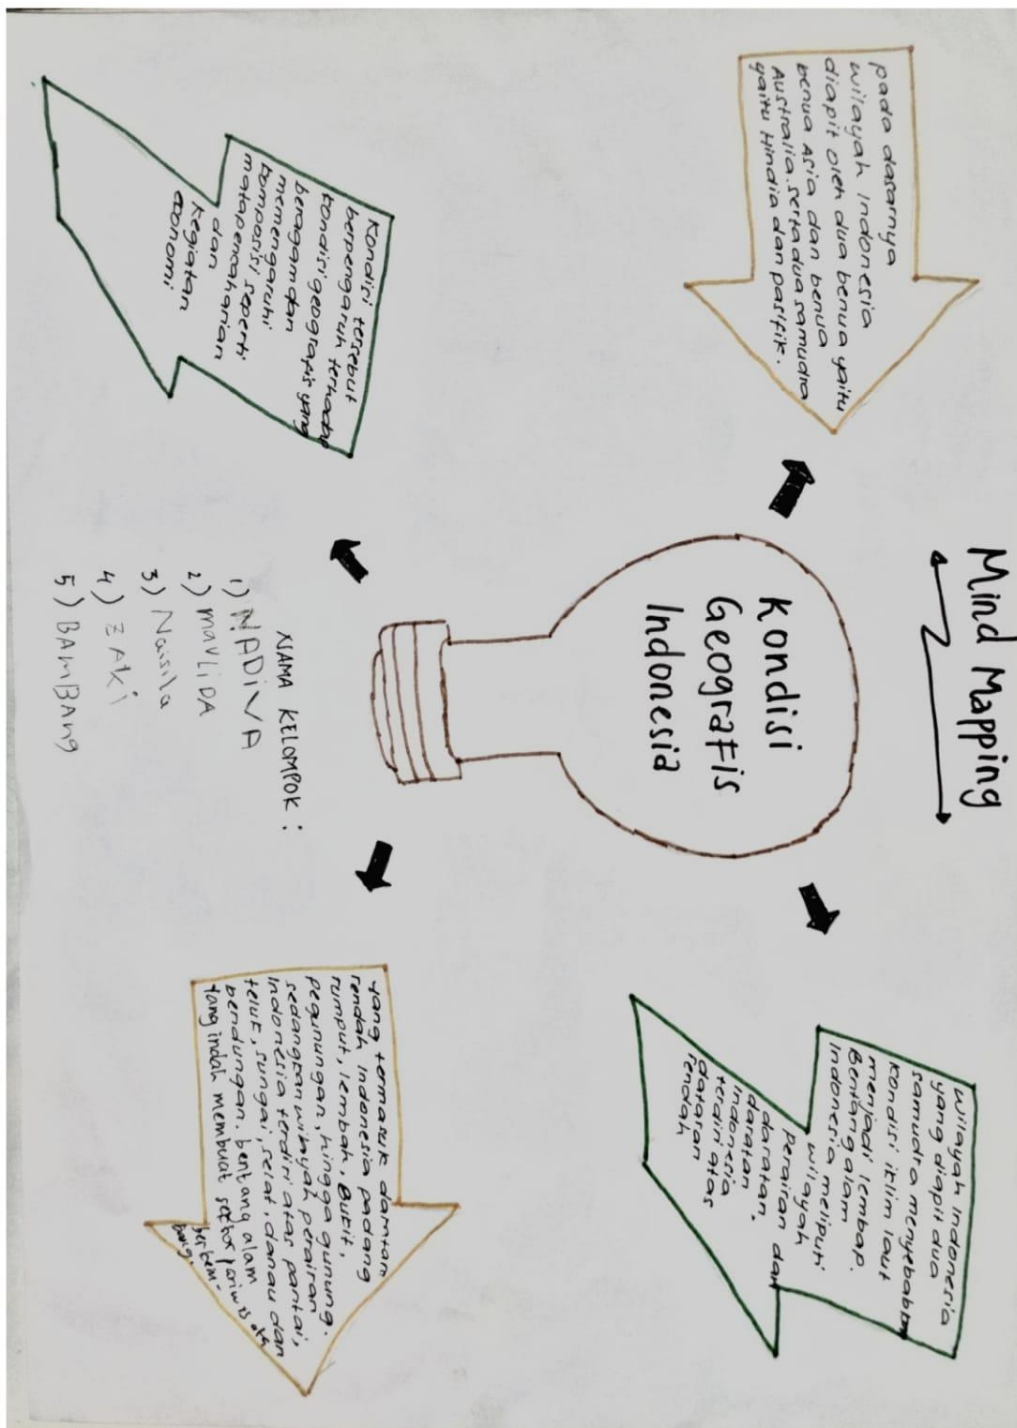 Mind Mapping
Kondisi
Geografis
Indonesia
pada dasarnya
wilayah Indonesia
diapit oleh dua benua yaitu
benua Asia dan benua
Australia. serta dua samudra
yaitu Hindia dan pasifik.
Wilayah Indonesia
yang diapit dua
samudra menyebabkan
kondisi iklim laut
menjadi lembap.
Bentang alam
Indonesia meliputi
wilayah
perairan dan
daratan.
daratan
Indonesia
terdiri atas
dataran
rendah
Kondisi tersebut
berpengaruh terhadap
kondisi geografis yang
beragam dan
memengaruhi
komposisi seperti
matapencaharian
dan
kegiatan
ekonomi
NAMA KELOMPOK :
1) NADiVA
2) maVLiDA
3) Naisila
4) ZAKi
5) BAmBAng
yang termasuk
rendah Indonesia padang
rumput, lembah, Bukit,
pegunungan, hingga gunung.
sedangkan wilayah perairan
Indonesia terdiri atas pantai,
teluk, sungai, selat, danau dan
bendungan. bentang alam
yang indah membuat sektor pariwisata
berkem-
bang.